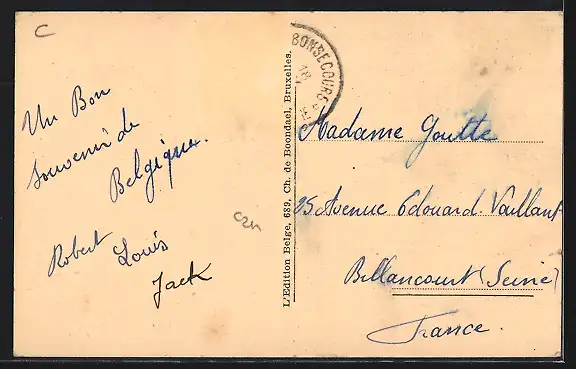 C
Un Bon
Souvenir de
Belgique.
Robert Louis
Jack
L'Edition Belge, 689, Ch. de Boondael, Bruxelles.
BONSECOURS
18
Madame Goutte
25 Avenue Edouard Vaillant
Billancourt (Seine)
France.